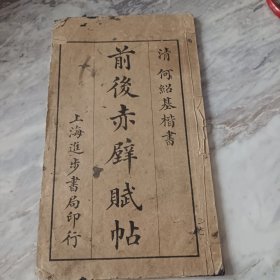 清 何紹基楷書
前後赤壁賦帖
上海進步書局印行